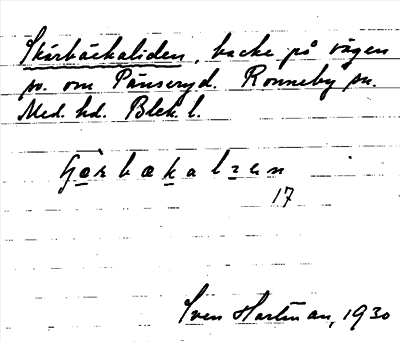 Skärbäckaliden, backe på vägen
sv. om Pänseryd. Ronneby sn.
Med. hd. Blek. l.
17
Sven Hartman, 1930